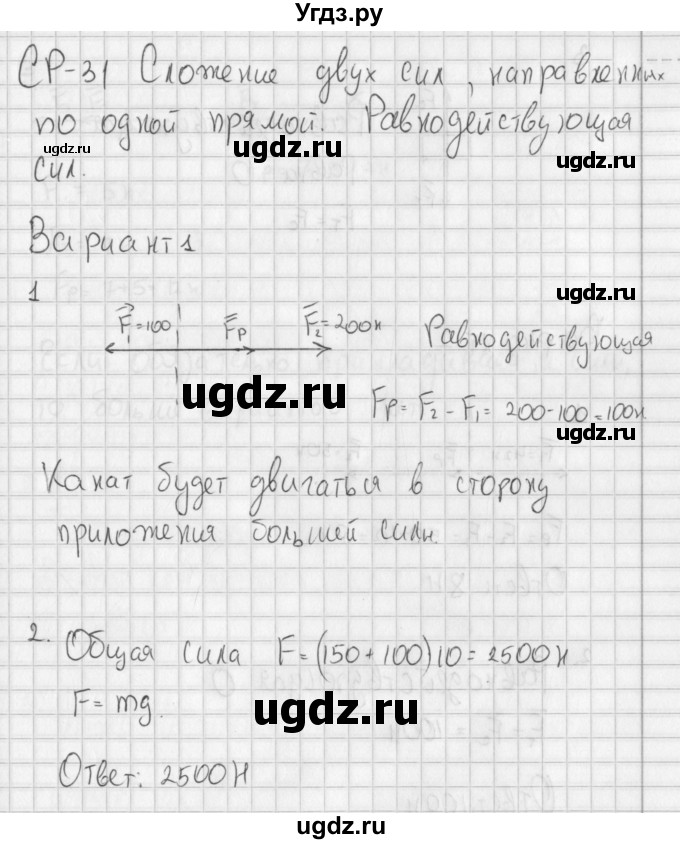 Угдз.ру
СР-31 Сложение двух сил, направленных
по одной прямой. Равнодействующая
ugdz.ru ugdz.ru ugdz.ru
сил.
Вариант 1
1
F₁=100 Fр F₂=200н Равнодействующая
ugdz.ru
Fр= F₂ - F₁= 200-100=100н
ugdz.ru
Канат будет двигаться в сторону
приложения большей силы.
2. Общая сила F=(150+100)10=2500н
ugdz.ru
F=mg.
ugdz.ru
Ответ: 2500Н
ugdz.ru ugdz.ru
ugdz.ru